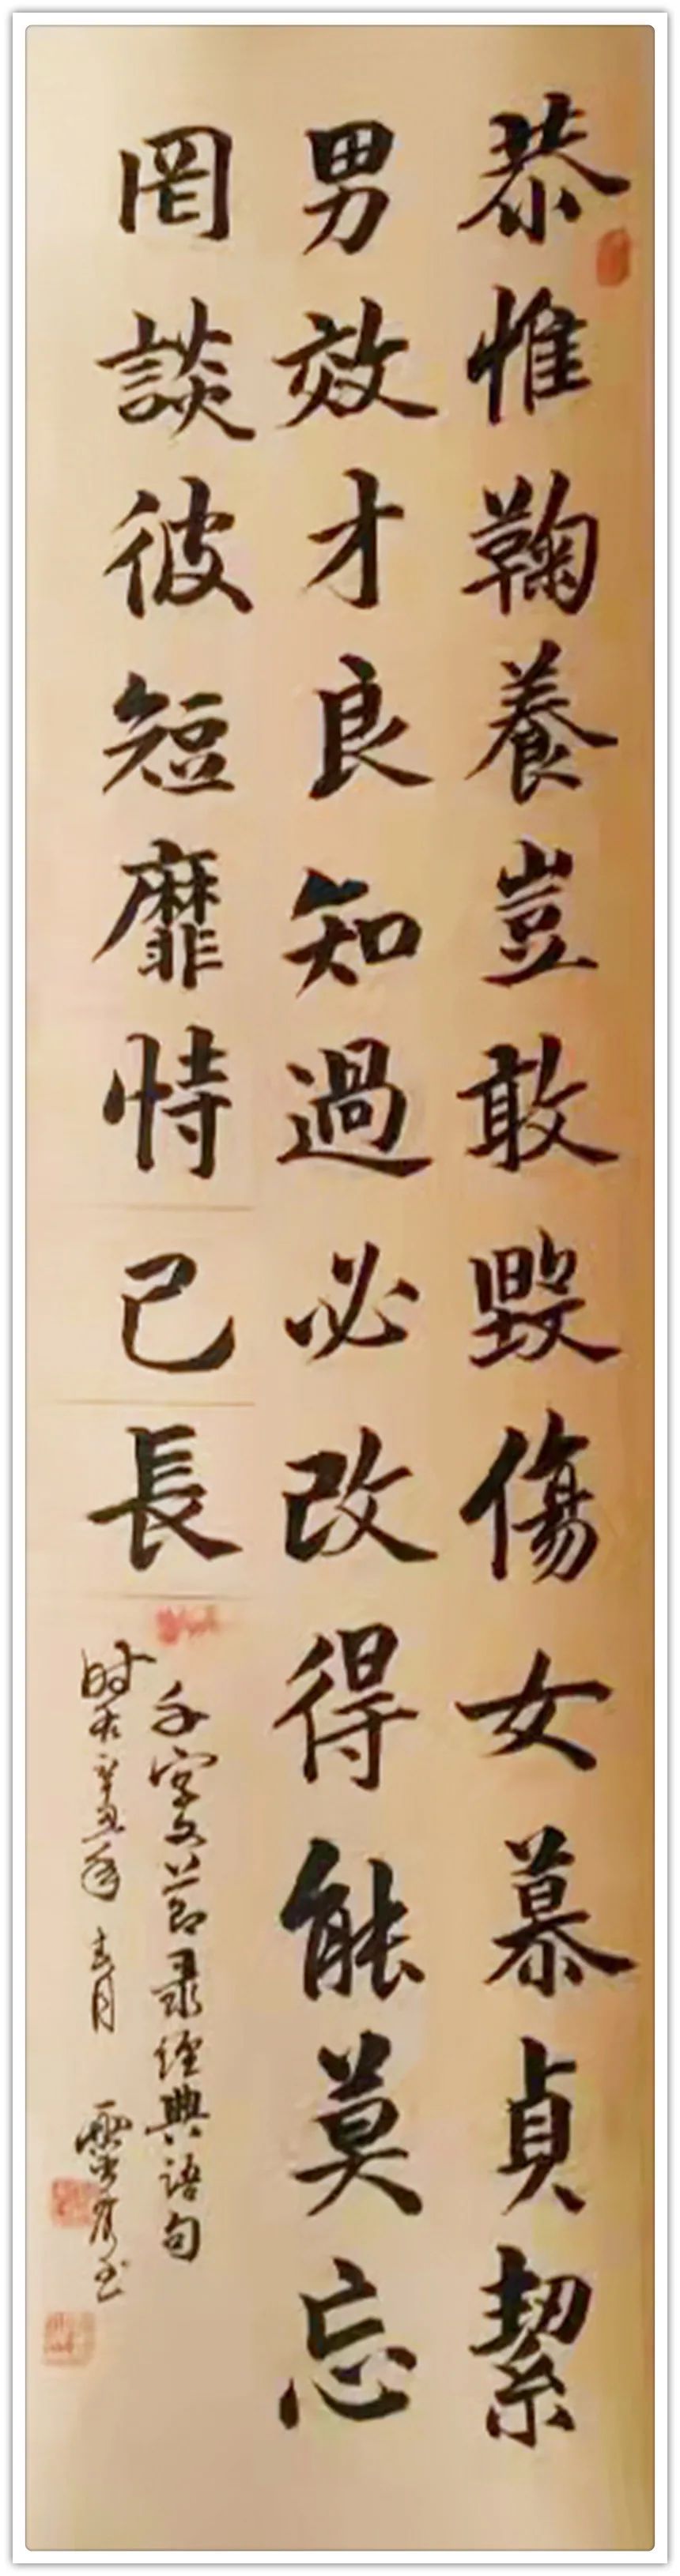 恭惟鞠養豈敢毀傷女慕貞絜
男效才良知過必改得能莫忘
罔談彼短靡恃己長
千字文節录經典語句
时在辛丑年春月